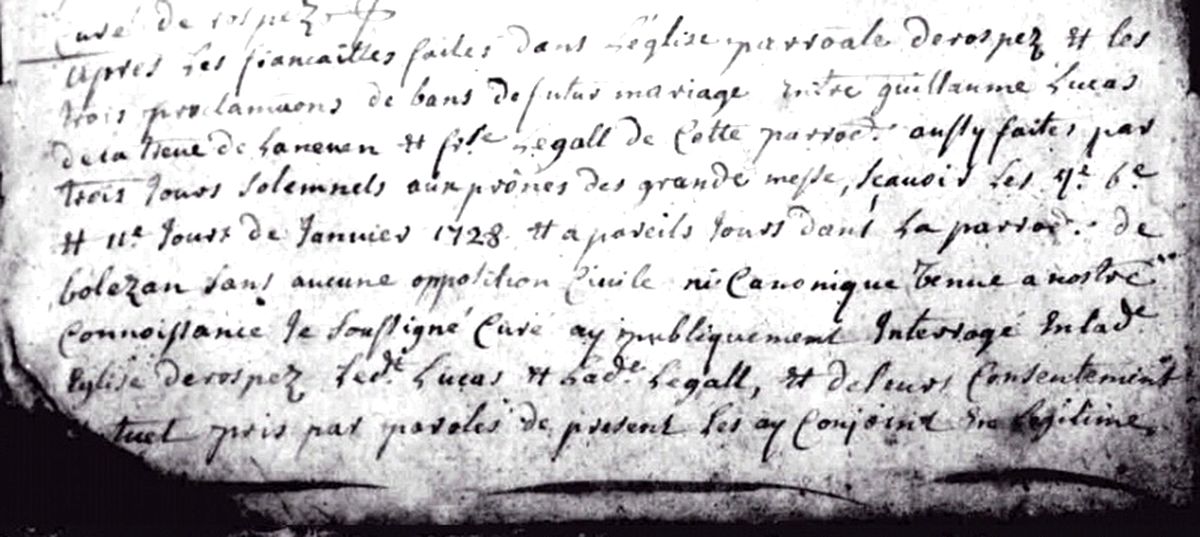 Curé de rospez
apres les fiancailles faites dans L'église parroale derospez et les
trois proclamaons de bans defutur mariage entre guillaume Lucas
dela treue de Laneuen et frse Legall de Cette parroe. aussy faites par
trois Jours solemnels aux prônes des grande messe, scauoir les 4e 6e
et 11e Jours de Januier 1728 et a pareils Jours dans la parroe. de
bolezan sans aucune opposition Ciuile ni Canonique venue a nostre
Connoissance Je soussigné Curé ay publiquement Interrogé Enlade
Eglise derospez Ledt Lucas et Lade Legall, et deleurs Consentement
mutuel pris par paroles de present les ay Conjoint En legitime